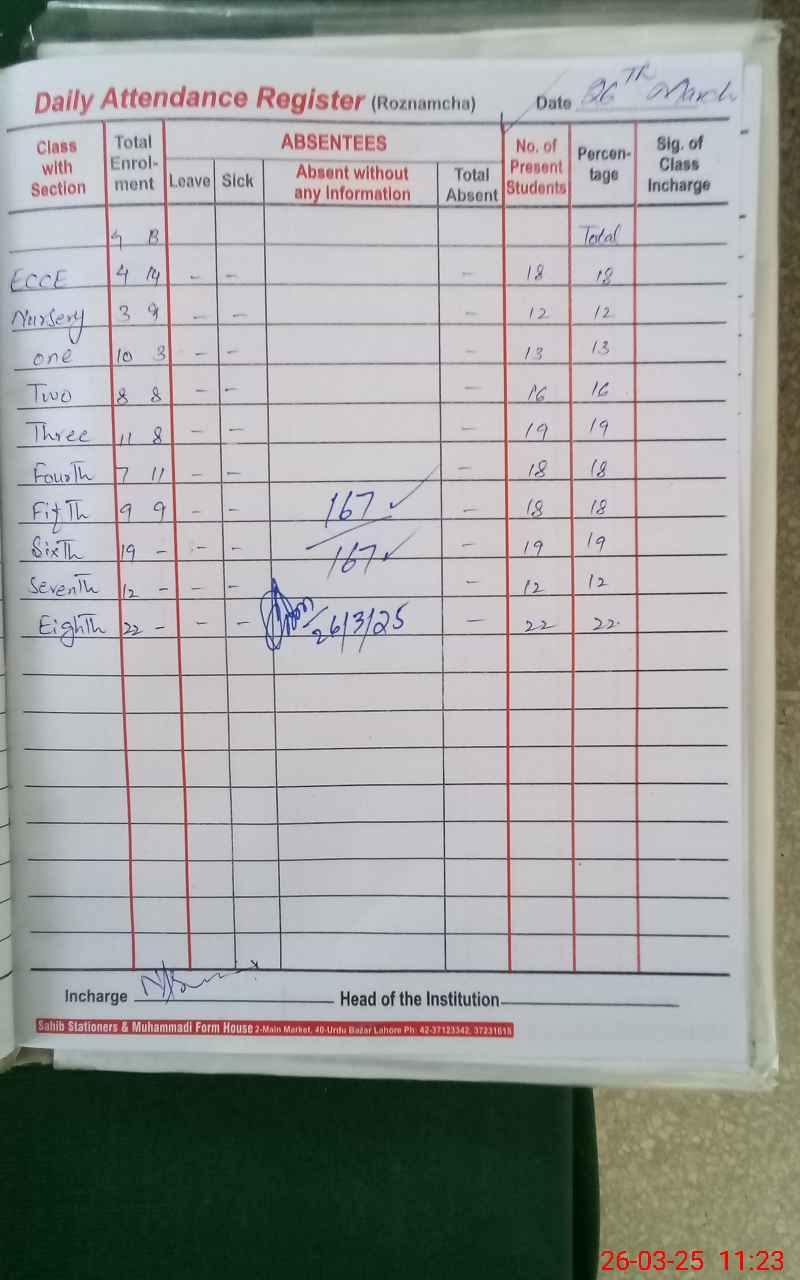 Daily Attendance Register (Roznamcha) Date 26TH March
Class with Section Total Enrol-ment ABSENTEES Leave Sick Absent without any Information Total Absent No. of Present Students Percen-tage Sig. of Class Incharge
G B Total
ECCE 4 14 - - - 18 18
Nursery 3 9 - - - 12 12
one 10 3 - - - 13 13
Two 8 8 - - - 16 16
Three 11 8 - - - 19 19
FourTh 7 11 - - - 18 18
FifTh 9 9 - - 167 - 18 18
SixTh 19 - - - 167 - 19 19
SevenTh 12 - - - - 12 12
EighTh 22 - - - 26/3/25 - 22 22
Incharge Head of the Institution
Sahib Stationers & Muhammadi Form House 2-Main Market, 40-Urdu Bazar Lahore Ph: 42-37123342, 37231615
26-03-25 11:23